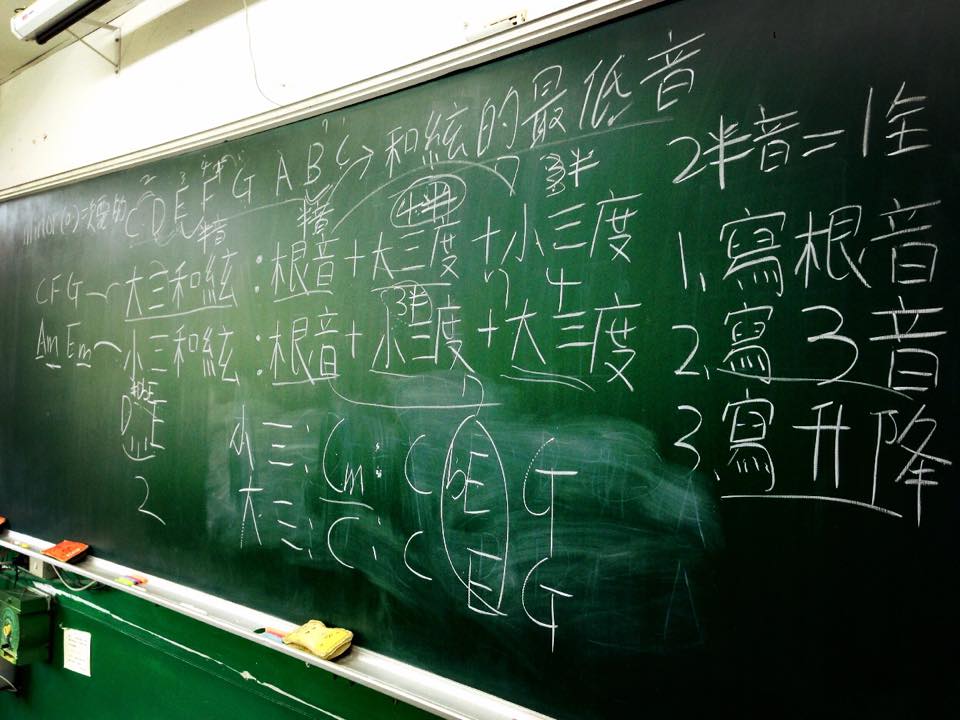 和絃的最低音
C D E F G A B C
半音 半音
4半 3半
大三和絃:根音+大三度+小三度
CFG
3半 4
小三和絃:根音+小三度+大三度
Am Em
D E
2
小三:Cm:C bE G
大三:C:C E G
2半音=1全
1.寫根音
2.寫3音
3.寫升降